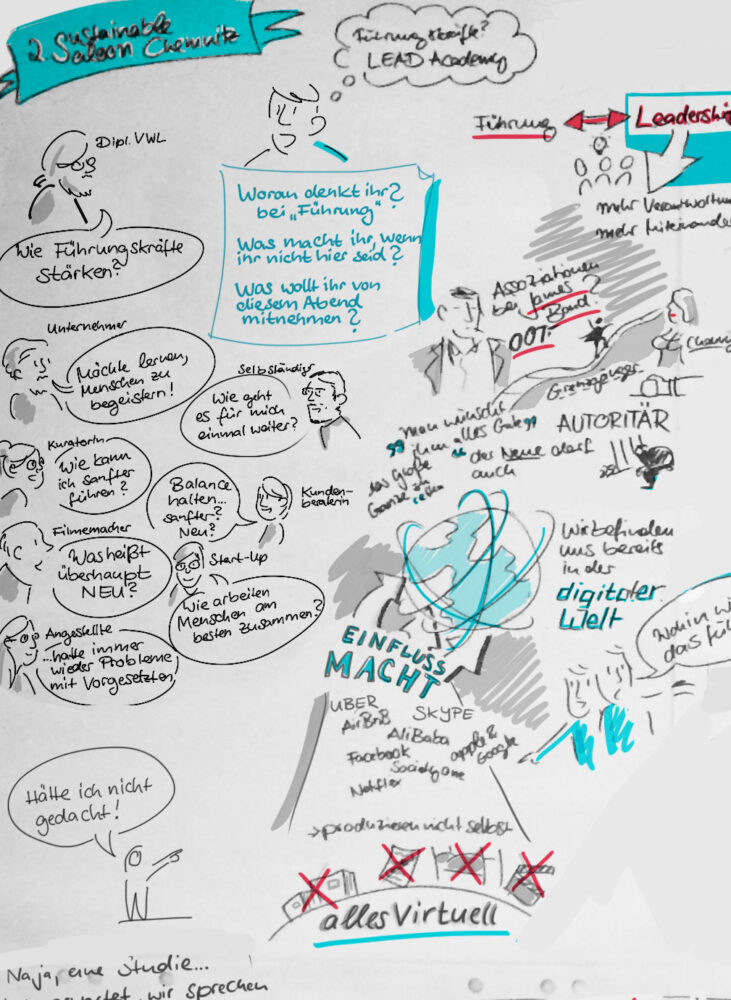 2. Sustainable
Saloon Chemnitz
Führungskräfte?
LEAD Academy
Dipl. VWL
Wie Führungskräfte
stärken?
Woran denkt ihr?
bei „Führung"
Was macht ihr, wenn
ihr nicht hier seid?
Was wollt ihr von
diesem Abend
mitnehmen?
Führung
Leadership
mehr Verantwortun
mehr Miteinander
Assoziationen
bei James
Bond?
007
Grenzgänger
Unternehmer
Möchte lernen,
Menschen zu
begeistern!
Selbständiger
Wie geht
es für mich
einmal weiter?
Kuratorin
Wie kann
ich sanfter
führen?
Balance
halten...
sanfter?
Neu?
Kunden-
beraterin
Filmemacher
Was heißt
überhaupt
NEU?
Start-Up
Wie arbeiten
Menschen am
besten zusammen?
Angestellte
...hatte immer
wieder Probleme
mit Vorgesetzten
man wünscht
ihm alles Gute
das große
Ganze zu
AUTORITÄR
der Neue darf
auch
Wir befinden
uns bereits
in der
digitaler
Welt
Wohin wi
das füh
EINFLUSS
MACHT
UBER
SKYPE
AirBnB
AliBaba
Facebook
apple &
Google
Netflix
→ produzieren nicht selbst
alles Virtuell
Hätte ich nicht
gedacht!
Naja, eine Studie...
wir sprechen